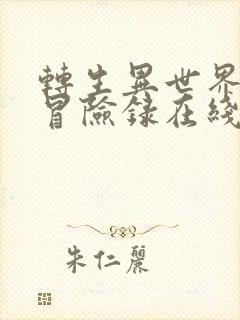 轉生異世界
冒險錄在綫
朱仁麗